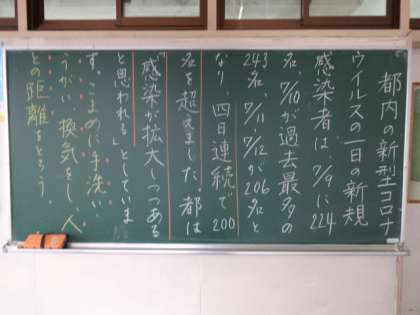 都内の新型コロナ
ウイルスの一日の新規
感染者は、7/9に224
名、7/10が過去最多の
243名、7/11、7/12が206名と
なり、四日連続で200
名を超えました。都は
「感染が拡大しつつある
と思われる」としていま
す。こまめに手洗い、
うがい、換気をし、人
との距離をとろう。